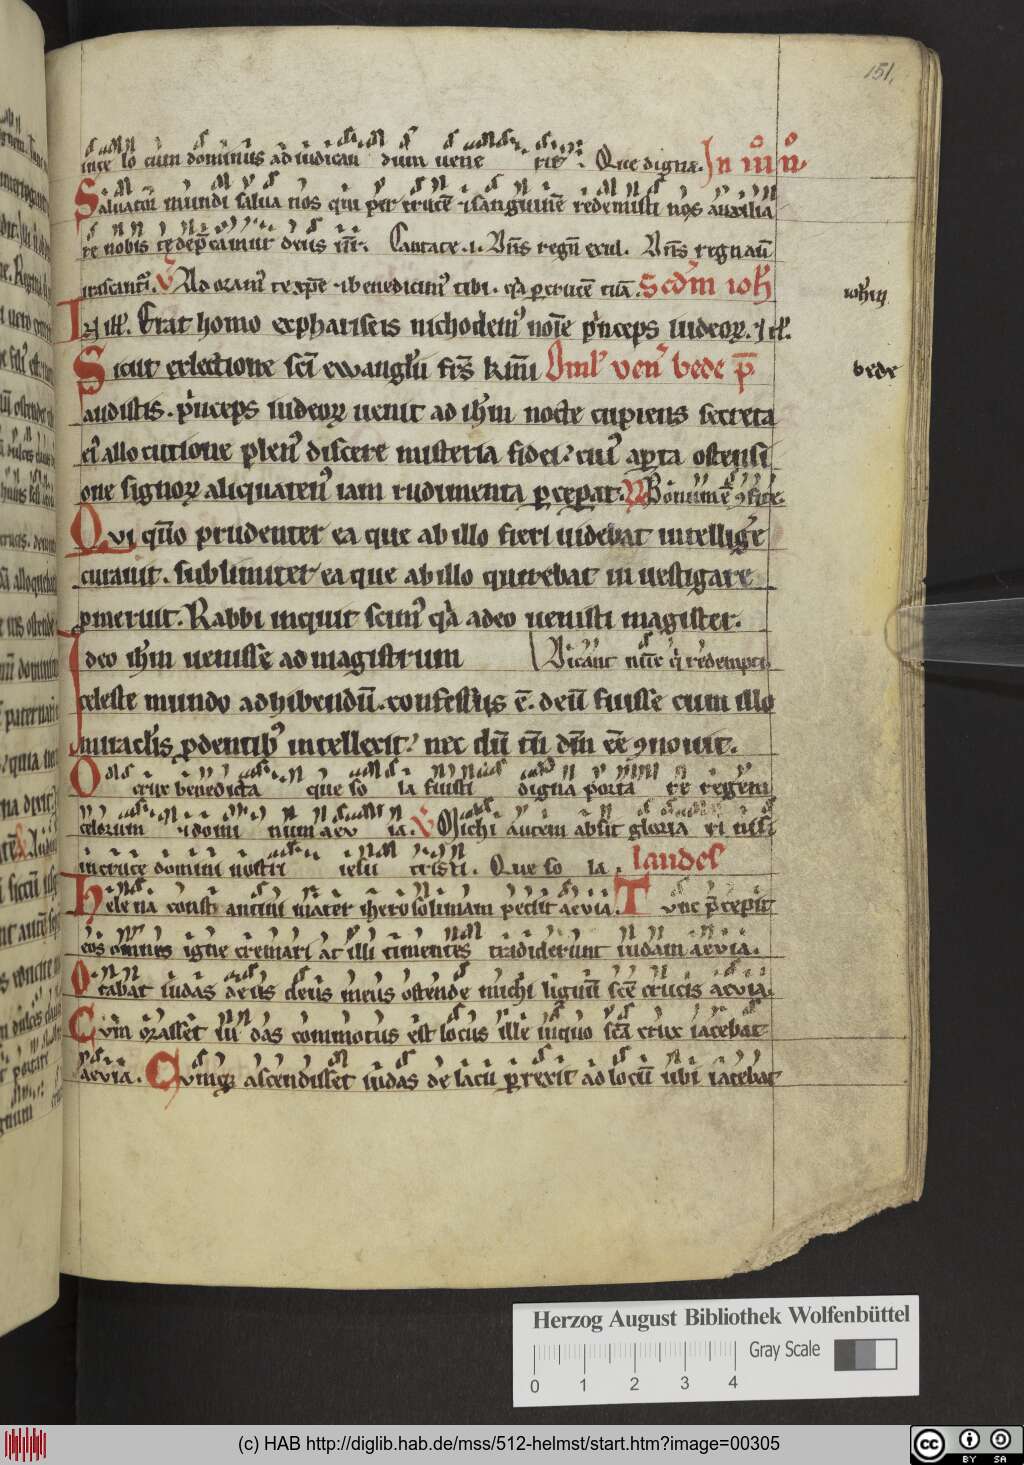 151.
in ce lo cum dominus ad iudican dum uene rit. Que digna. In iii n̄
Saluator mundi salua nos qui per crucē ⁊ sanguinē redemisti nos auxilia
re nobis te dep̄camur deus nr̄. Cantate .i. Dn̄s regn̄ exul. Dn̄s regnaū
irascant᷑. V Adoram᷒ te xp̄e ⁊ benedicim᷒ tibi. q̄a p crucē tuā. Scdm ioh̄
In ill̄. Erat homo ex phariseis nichodem᷒ noīe p̄nceps iudeoꝝ. ⁊ rl̄.
iohm̄
Sicut ex lectione sc̄i ewangl̄ii fr̄s km̄i Oml̄ ven̄ bede p̄
bede
audistis. p̄nceps iudeoꝝ uenit ad ih̄m nocte cupiens secreta
ei᷒ allocutione plen᷒ discere misteria fidei. cui᷒ aꝑta ostensi
one signoꝝ aliquaten᷒ iam rudimenta ꝑceꝑat.
Qui quō prudenter ea que ab illo fieri uidebat intellige
curauit. sublimiter ea que ab illo querebat inuestigare
ꝓmeruit. Rabbi inquit scim᷒ q̄a a deo uenisti magister.
Ideo ih̄m uenisse ad magistrum
Dicant nūc q̄ redempti
celeste mundo adhibendū. confessus ē. deū fuisse cum illo
miraclis ꝓdentib᷒ intellexit. nec dū tn̄ dm̄ eē ꝯnouit.
O crux benedicta que so la fuisti digna porta re regem
celorum ⁊ domi num aeu ia. V Michi autem absit gloria ri nisi
in cruce domini nostri iesu cristi. Que so la. laudes
Helena constantini mater iherosolimam petiit aeuia. Tunc p̄cepit
eos omnes igne cremari at illi timentes tradiderunt iudam aeuia.
Orabat iudas deus deus meus ostende michi lignū scē crucis aeuia.
Cum orasset iu das commotus est locus ille in quo scā crux iacebat
aeuia. Cumqꝫ ascendisset iudas de lacu ꝑrexit ad locū ubi iacebat
Herzog August Bibliothek Wolfenbüttel
Gray Scale
0 1 2 3 4
(c) HAB http://diglib.hab.de/mss/512-helmst/start.htm?image=00305
cc BY SA